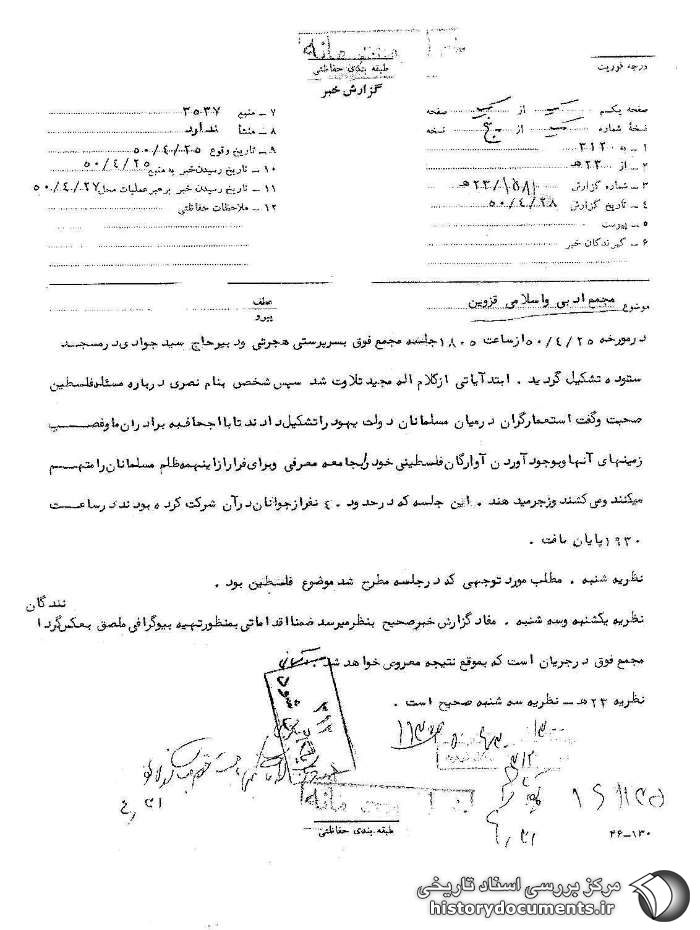 طبقه بندی حفاظتی
گزارش خبر
درجه فوریت
صفحه یکم یک از یک صفحه
نسخهٔ شماره یک از پنج نسخه
۱ – به ۳۱۲۰
۲ – از ۲۳هـ
۳ – شماره گزارش
۴ – تاریخ گزارش ۵۰/۴/۲۸
۵ – پیوست
۶ – گیرندگان خبر
۷ – منبع ۳۵۳۷
۸ – منشأ ندارد
۹ – تاریخ وقوع ۵۰/۴/۲۵
۱۰ – تاریخ رسیدن خبر به منبع ۵۰/۴/۲۵
۱۱ – تاریخ رسیدن خبر برهبر عملیات محل ۵۰/۴/۲۷
۱۲ – ملاحظات حفاظتی
موضوع مجمع ادبی واسلامی قزوین
عطف
پیرو
درمورخه ۵۰/۴/۲۵ از ساعت ۱۸۰۵ جلسه مجمع فوق بسرپرستی هجرتی ودبیرحاج سید جوادی درمسجد
ستوده تشکیل گردید . ابتدآیاتی ازکلام اله مجید تلاوت شد سپس شخصی بنام نصری درباره مسئله فلسطین
صحبت وگفت استعمارگران درمیان مسلمانان دولت یهود راتشکیل دادند تابااجحاف به برادران ما وغصب
زمینهای آنها وبوجود آوردن آوارگان فلسطینی خود رابجامعه معرفی وبرای فرارازاینهمه ظلم مسلمانان رامتهم
میکنند ومی کشند وزجرمیدهند . این جلسه که درحدود ۴۰ نفرازجوانان درآن شرکت کرده بودند درساعت
۱۹۳۰ پایان یافت .
نظریه شنبه . مطلب مورد توجهی که درجلسه مطرح شد موضوع فلسطین بود .
نظریه یکشنبه وسه شنبه . مفاد گزارش خبرصحیح بنظرمیرسد ضمنا اقداماتی بمنظورتهیه بیوگرافی ملصق بعکس گردانندگان
مجمع فوق درجریان است که بموقع نتیجه معروض خواهد شد
نظریه ۲۳هـ – نظریه سه شنبه صحیح است .
۳۱۲
شود
۳۱۲
طبقه بندی حفاظتی
۲۶–۱۳۰
مرکز بررسی اسناد تاریخی
historydocuments.ir